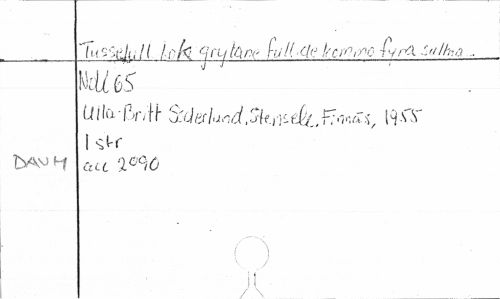 Tussehill kok grytane full de komma fyra sultna
N:o 65
Ulla-Britt Söderlund, Stensele, Finnäs, 1955
1 str
DAUM acc 2090